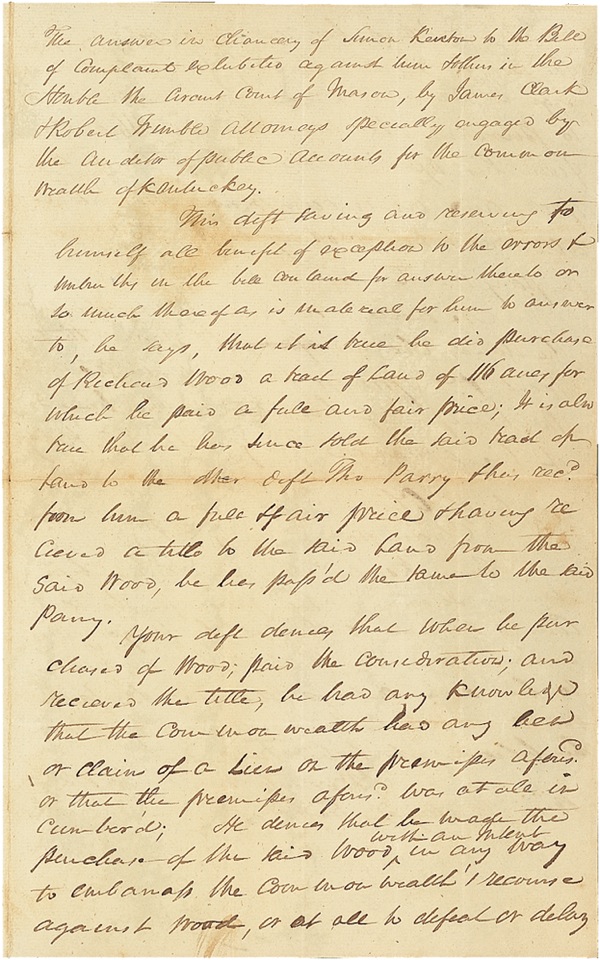 The answer in Chancery of Simon Kenton to the Bill
of Complaint exhibited against him & others in the
Honble the Circuit Court of Mason, by James Clark
& Robert Trimble attornies specially engaged by
the auditor of public accounts for the Common
wealth of Kentuckey.
This deft saving and reserving to
himself all benefit of exception to the errors &
untruths in the bill contained for answer thereto or
so much thereof as is material for him to answer
to, he says, that it is true he did purchase
of Richard Wood a tract of Land of 116 acres for
which he paid a full and fair price; It is also
true that he has since sold the said tract of
Land to the other deft Tho Parry & has recd.
from him a full & fair price & having re
cieved a title to the said Land from the
said Wood, he has pass'd the same to the said
Parry.
Your deft denies that when he pur
chased of Wood; paid the consideration; and
recieved the title, he had any knowledge
that the Commonwealth had any lien
or claim of a Lien on the premises aforesd.
or that the premises aforesd. was at all in
cumber'd; He denies that he made the
purchase of the said Wood, with an intent in any way
to embarrass the Commonwealth's recourse
against Wood, or at all to defeat or delay